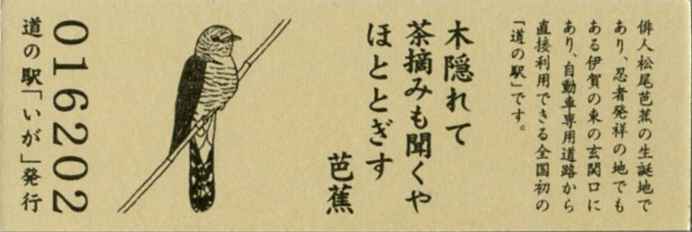 俳人松尾芭蕉の生誕地で
あり、忍者発祥の地でも
ある伊賀の東の玄関口に
あり、自動車専用道路から
直接利用できる全国初の
「道の駅」です。
木隠れて
茶摘みも聞くや
ほととぎす
芭蕉
016202
道の駅「いが」発行